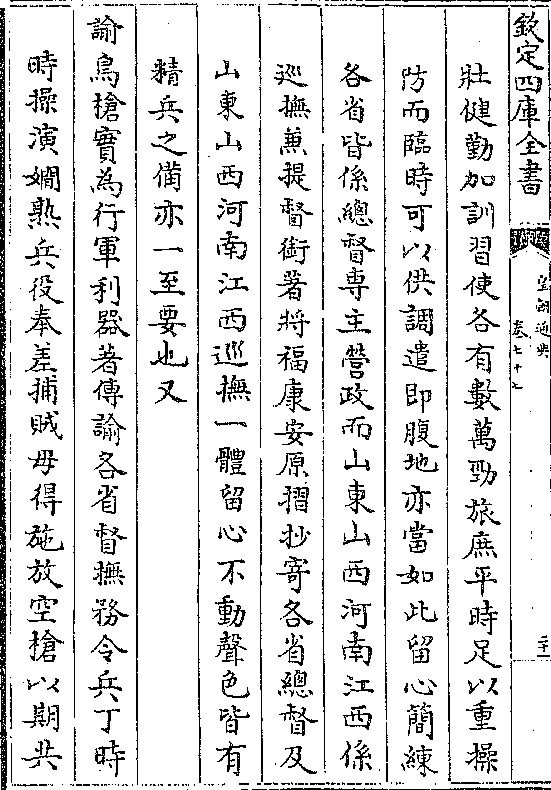 欽定四庫全書
皇朝通典
卷七十七
二十
壯健勤加訓習使各有數萬勁旅庶平時足以重操
防而臨時可以供調遣即腹地亦當如此留心簡練
各省皆係總督專主營政而山東山西河南江西係
巡撫兼提督銜著將福康安原摺抄寄各省總督及
山東山西河南江西巡撫一體留心不動聲色皆有
精兵之備亦一至要也又
諭鳥槍實為行軍利器著傳諭各省督撫務令兵丁時
時操演嫺熟兵役奉差捕賊毋得施放空槍以期共